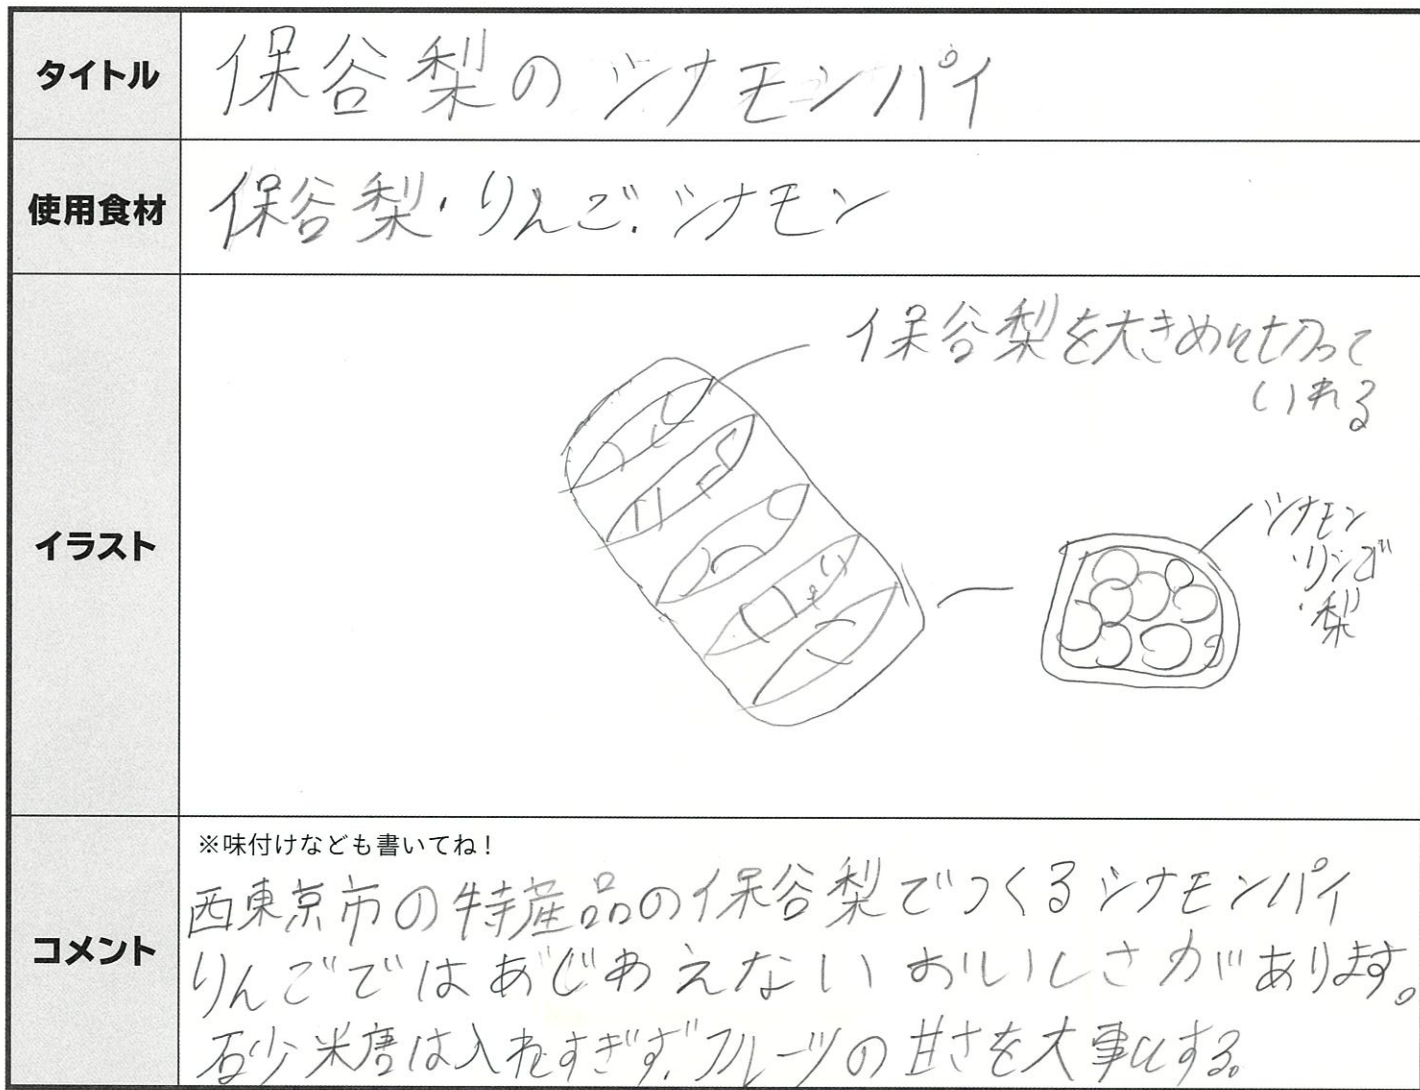 タイトル
保谷梨のシナモンパイ
使用食材
保谷梨・りんご・シナモン
イラスト
保谷梨を大きめに切って
いれる
シナモン
・リンゴ
・梨
コメント
※味付けなども書いてね！
西東京市の特産品の保谷梨でつくるシナモンパイ
りんごではあじわえないおいしさがあります。
砂糖は入れすぎず、フルーツの甘さを大事にする。